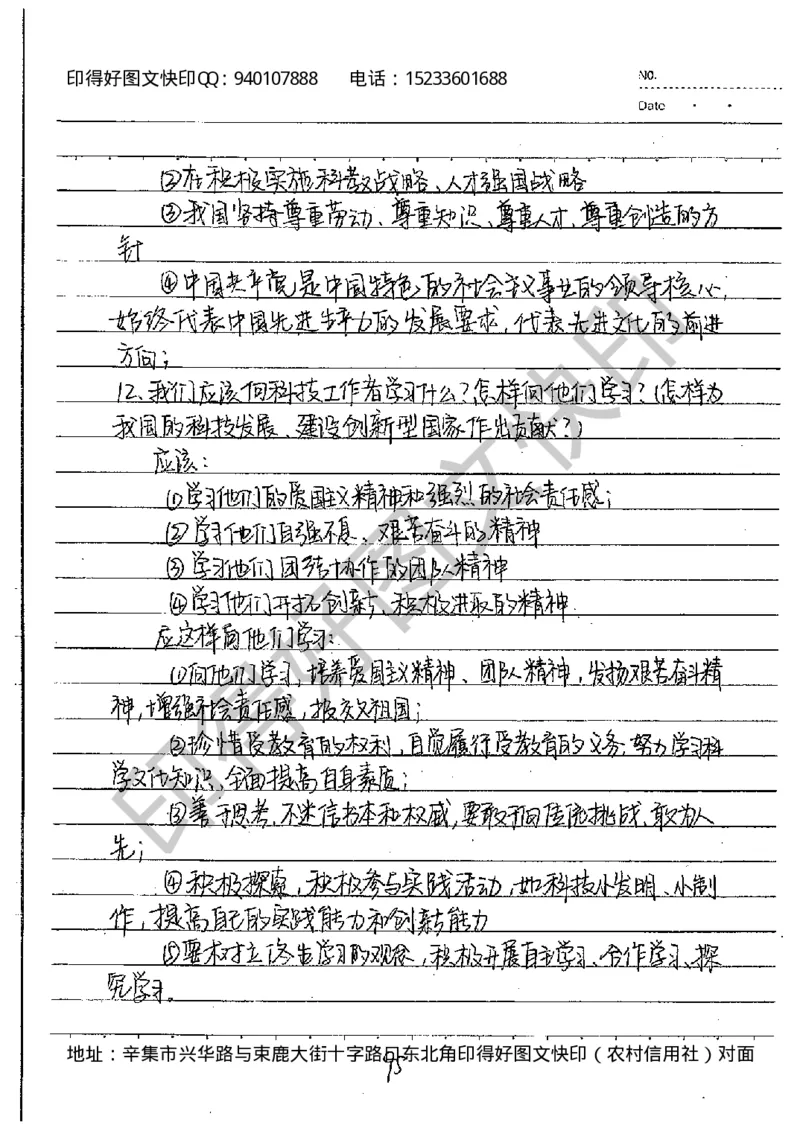 印得好图文快印QQ：940107888 电话：15233601688
NO.
Date
②在积极实施科教战略、人才强国战略
③我国坚持尊重劳动、尊重知识、尊重人才、尊重创造的方
针
④中国共产党是中国特色的社会主义事业的领导核心，
始终代表中国先进生产力的发展要求，代表先进文化的前进
方向；
12、我们应该向科技工作者学习什么？怎样向他们学习？（怎样为
我国的科技发展、建设创新型国家作出贡献？）
应该：
①学习他们的爱国主义精神和强烈的社会责任感；
②学习他们自强不息、艰苦奋斗的精神
③学习他们团结协作的团队精神
④学习他们开拓创新、积极进取的精神
应这样向他们学习：
①向他们学习，培养爱国主义精神、团队精神，发扬艰苦奋斗精
神，增强社会责任感，报效祖国；
②珍惜受教育的权利，自觉履行受教育的义务；努力学习科
学文化知识，全面提高自身素质；
③善于思考，不迷信书本和权威，要敢于向传统挑战，敢为人
先；
④积极探索，积极参与实践活动，如科技小发明、小制
作，提高自己的实践能力和创新能力
⑤要树立终生学习的观念，积极开展自主学习、合作学习、探
究学习。
地址：辛集市兴华路与束鹿大街十字路口东北角印得好图文快印（农村信用社）对面
95
印得好图文快印